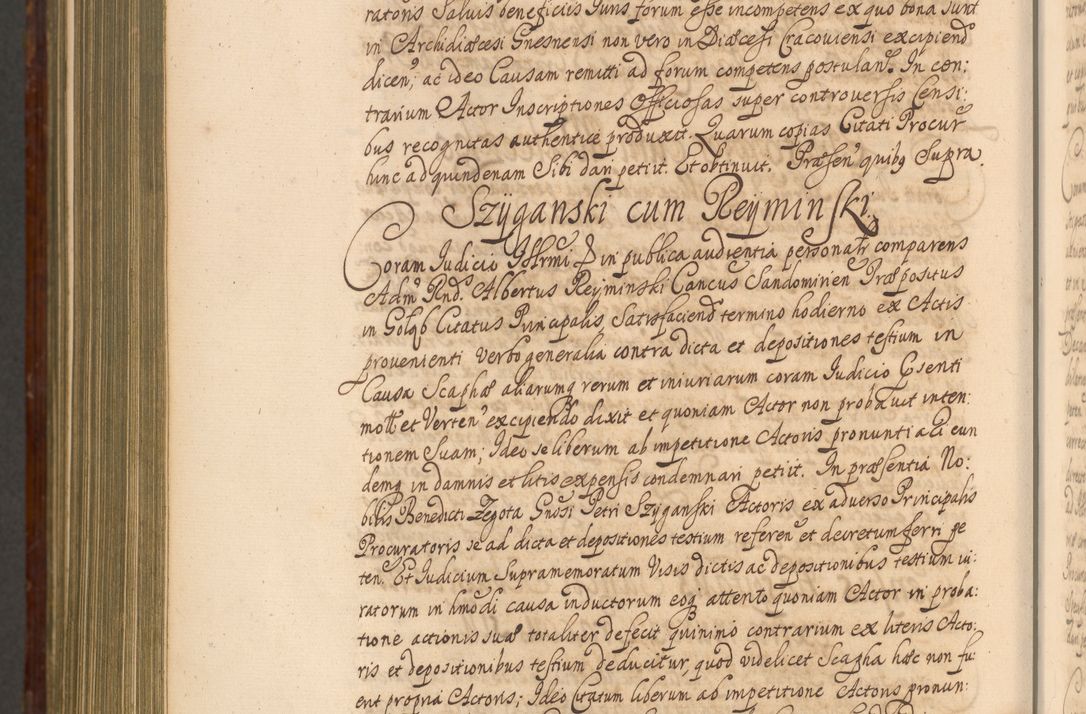 ratoris Salvis beneficiis Juris forum esse incompetens ex quo bona sunt
in Archidiæcesi Gnesnensi non vero in Diæcesi Cracoviensi excipiend
dicen; ac ideo Causam remitti ad forum competens postulan. In con:
trarium Actor Inscriptiones Officiosas super controversis Censi:
bus recognitas authentice produxit. Quarum copias Citati Procur
hinc ad quindenam Sibi dari petiit. Et obtinuit. Præsen quibq Supra.
Szÿganski cum Reÿminski.
Coram Judicio in publica audientia personatr comparens
Adm Rnd. Albertus Reÿminski Cancus Sandomirien Præpositus
in Golqb Citatus Principalis, Satisfaciend termino hodierno ex Actis
provenienti verbo generalia contra dicta et depositiones testium in
Causa Scaphæ aliarumq rerum et iniuriarum coram Judicio Psenti
mott et Verten excipiendo dixit et quoniam Actor non probavit inten:
tionem Suam; Ideo se liberum ab impetitione Actoris pronuntiaci eun
demq in damnis et litis expensis condemnari petiit. In præsentia No:
bilis Benedicti Zegota Gnosi Petri Szÿganski Actoris ex adverso Principalis
Procuratoris se ad dicta et depositiones testium referen et decretum ferri pe
ten. Et Judicium Supramemoratum Visis dictis ac depositionibus testium iu:
ratorum in hmodi causa inductorum eoq attento quoniam Actor in proba:
tione actionis suæ totaliter defecit quinimo contrarium ex literis Acto:
ris et depositionibus testium deducitur, quod videlicet Scapha hæc non fu:
erit propria Actoris; Ideo Citatum liberum ab impetitione Actoris pronun: